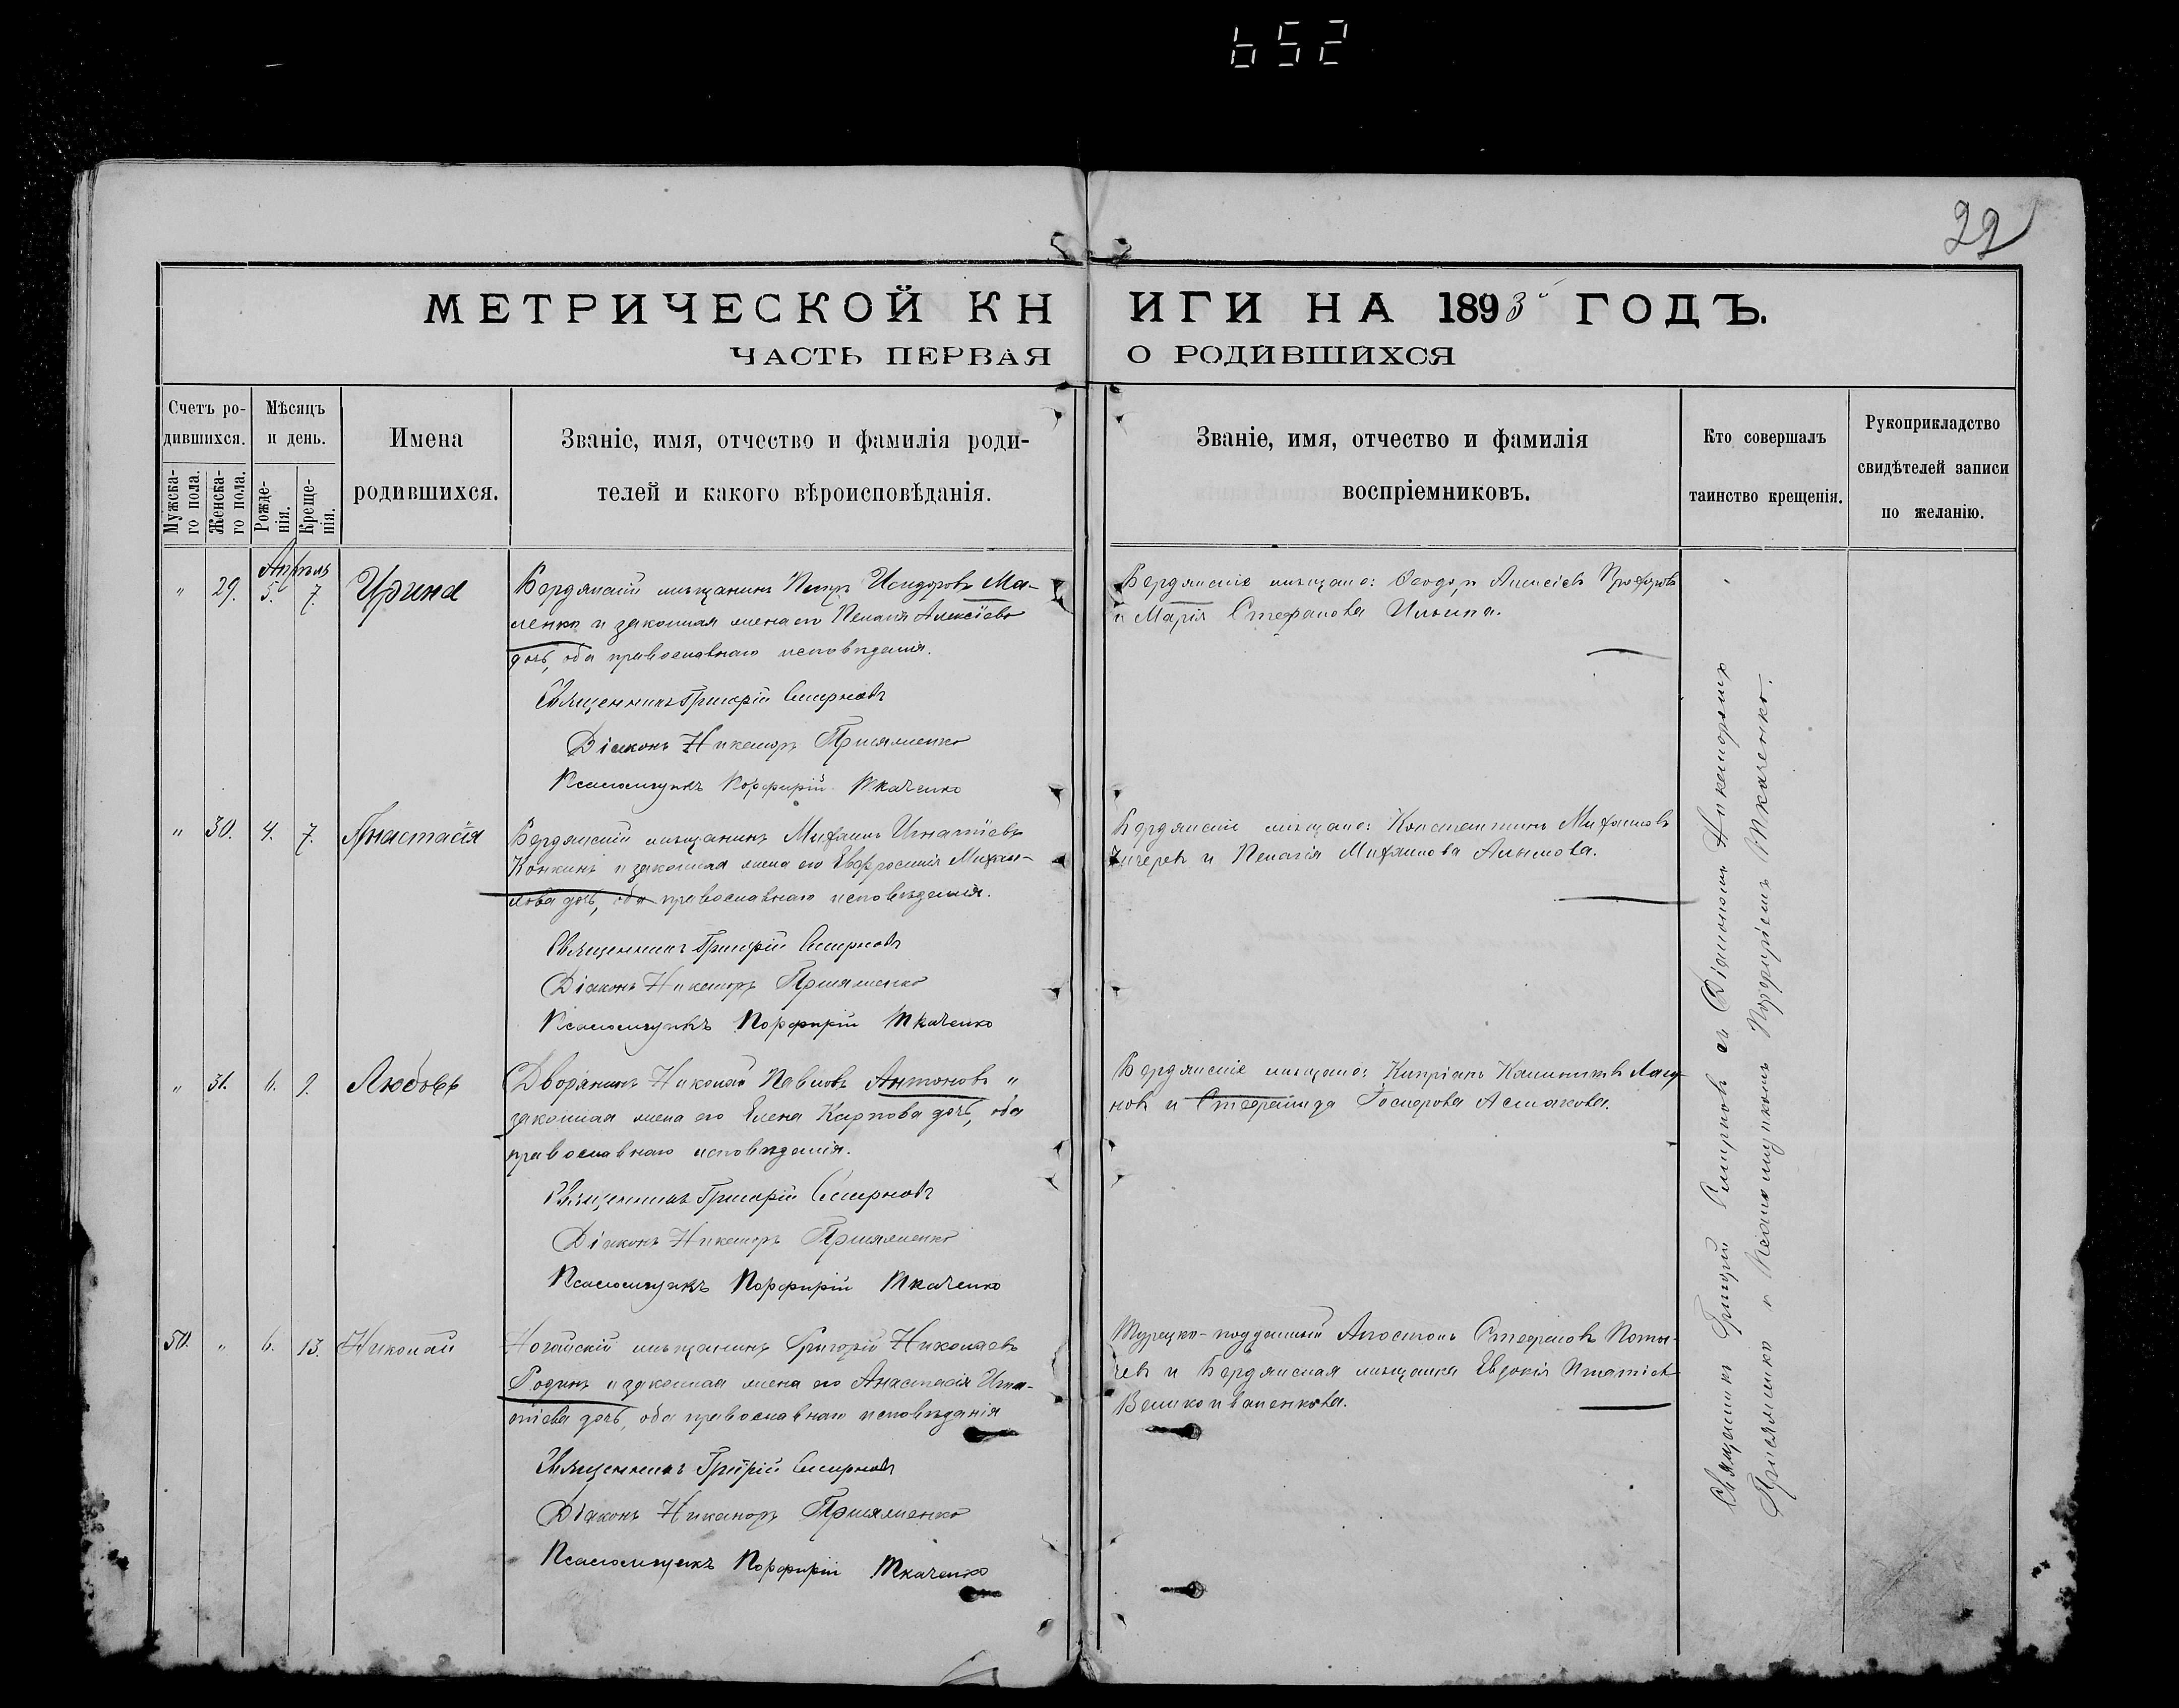 652
22
МЕТРИЧЕСКОЙ КНИГИ НА 1893й ГОДЪ.
ЧАСТЬ ПЕРВАЯ О РОДИВШИХСЯ
Счетъ ро-
дившихся.
Мужска-
го пола.
Женска-
го пола.
Мѣсяцъ
и день.
Рожде-
нія.
Креще-
нія.
Имена
родившихся.
Званіе, имя, отчество и фамилія роди-
телей и какого вѣроисповѣданія.
Званіе, имя, отчество и фамилія
воспріемниковъ.
Кто совершалъ
таинство крещенія.
Рукоприкладство
свидѣтелей записи
по желанію.
Апрѣль
" 29. 5. 7. Ирина
Бердянскій мѣщанинъ Петръ Исидоровъ Ма-
ленко и законная жена его Пелагія Алексіева
дочь, оба православнаго исповѣданія.
Священникъ Григорій Смирновъ
Діаконъ Никаноръ
Псаломщикъ Порфирій Ткаченко
Бердянскіе мѣщане: Ѳеодоръ Алексіевъ
и Марія Стефанова Ильина.
" 30. 4. 7. Анастасія
Бердянскій мѣщанинъ Михаилъ Игнатіевъ
Конкинъ и законная жена его Евфросинія Михаи-
лова дочь, оба православнаго исповѣданія.
Священникъ Григорій Смирновъ
Діаконъ Никаноръ
Псаломщикъ Порфирій Ткаченко
Бердянскіе мѣщане: Константинъ Михаиловъ
и Пелагія Михаилова
" 31. 6. 9. Любовь
Дворянинъ Николай Павловъ Антоновъ и
законная жена его Елена Карпова дочь, оба
православнаго исповѣданія.
Священникъ Григорій Смирновъ
Діаконъ Никаноръ
Псаломщикъ Порфирій Ткаченко
Бердянскіе мѣщане: Кипріанъ
и Стефанида
50. " 6. 13. Николай
Ногайскій мѣщанинъ Григорій Николаевъ
Родинъ и законная жена его Анастасія Игна-
тіева дочь, оба православнаго исповѣданія
Священникъ Григорій Смирновъ
Діаконъ Никаноръ
Псаломщикъ Порфирій Ткаченко
Турецко-подданный Апостолъ Стефановъ
и Бердянская мѣщанка Евдокія Игнатіева
Великоиваненкова.
Священникъ Григорій Смирновъ съ Діакономъ Никаноромъ
и Псаломщикомъ Порфиріемъ Ткаченко.